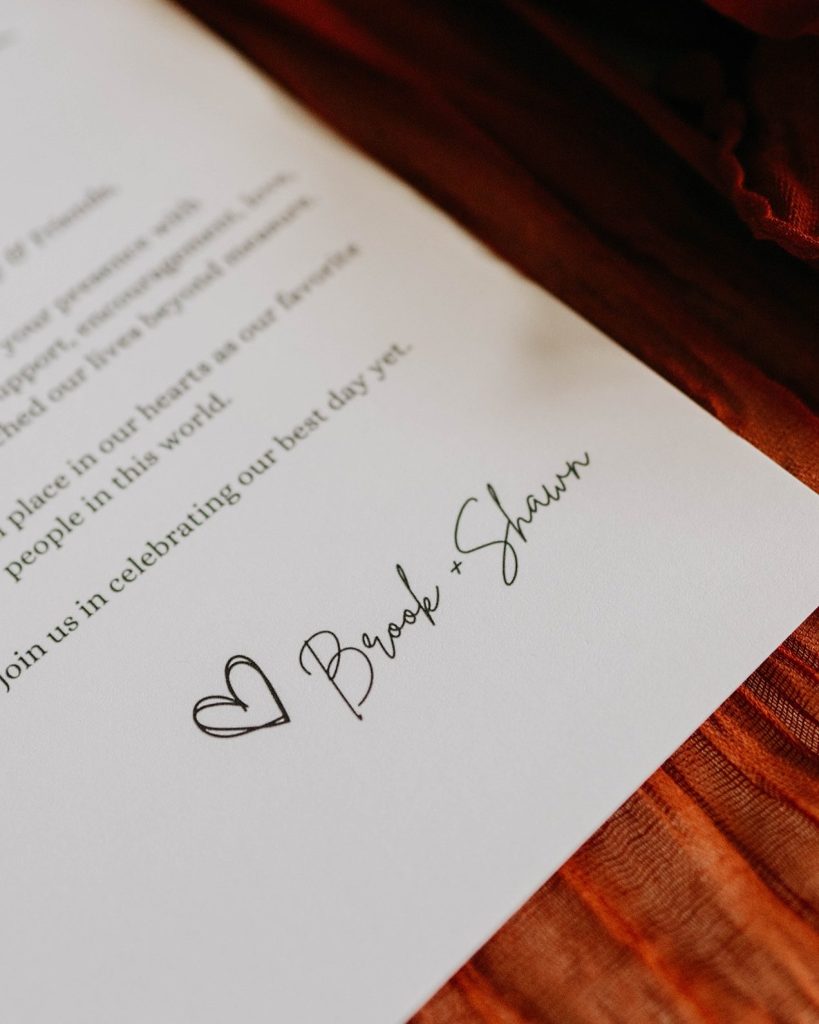 & Friends,
your presence with
support, encouragement, love,
our lives beyond measure.
place in our hearts as our favorite
people in this world.
Join us in celebrating our best day yet.
♡ Brook + Shawn